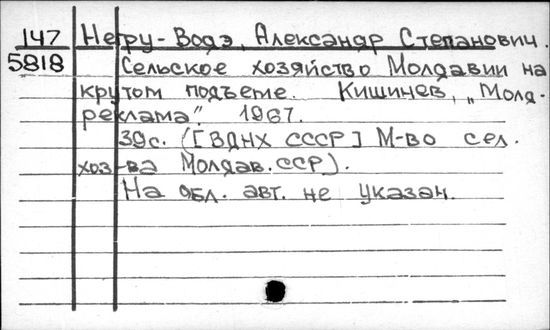 147 Негру-Водэ, Александр Степанович.
5818 Сельское хозяйство Молдавии на
крутом подъеме. Кишинев, „Молд-
реклама". 1967.
39с. ([ВДНХ СССР] М-во сел.
хоз-ва Молдав. ССР).
На обл. авт. не указан.